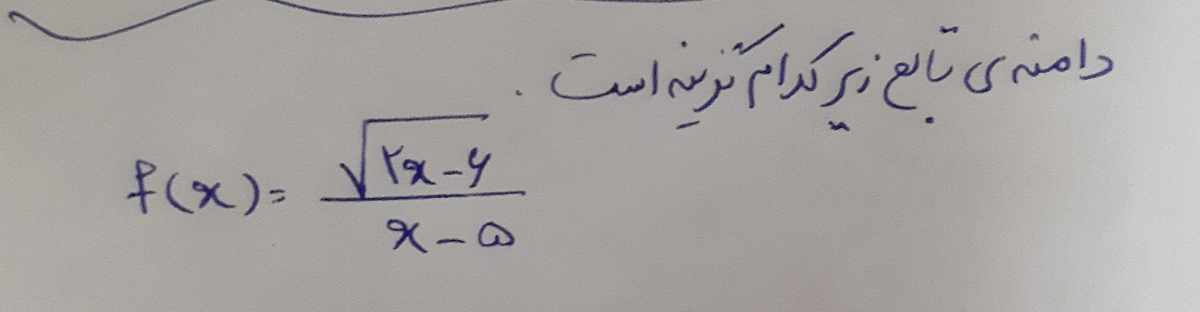 دامنه‌ی تابع زیر کدام گزینه است.
f(x) = √(۲x-۶) / (x-۵)